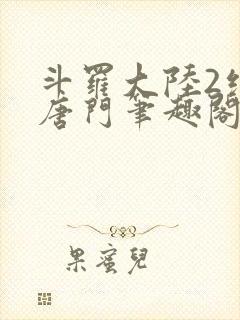 斗羅大陸2
唐門筆趣閣
果蜜兒